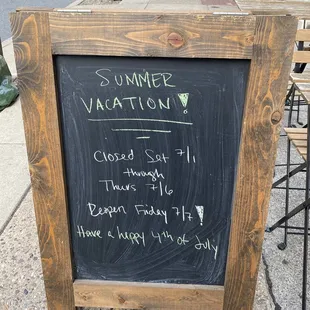 SUMMER
VACATION!
Closed Sat 7/1
through
Thurs 7/6
Reopen Friday 7/7!
Have a happy 4th of July